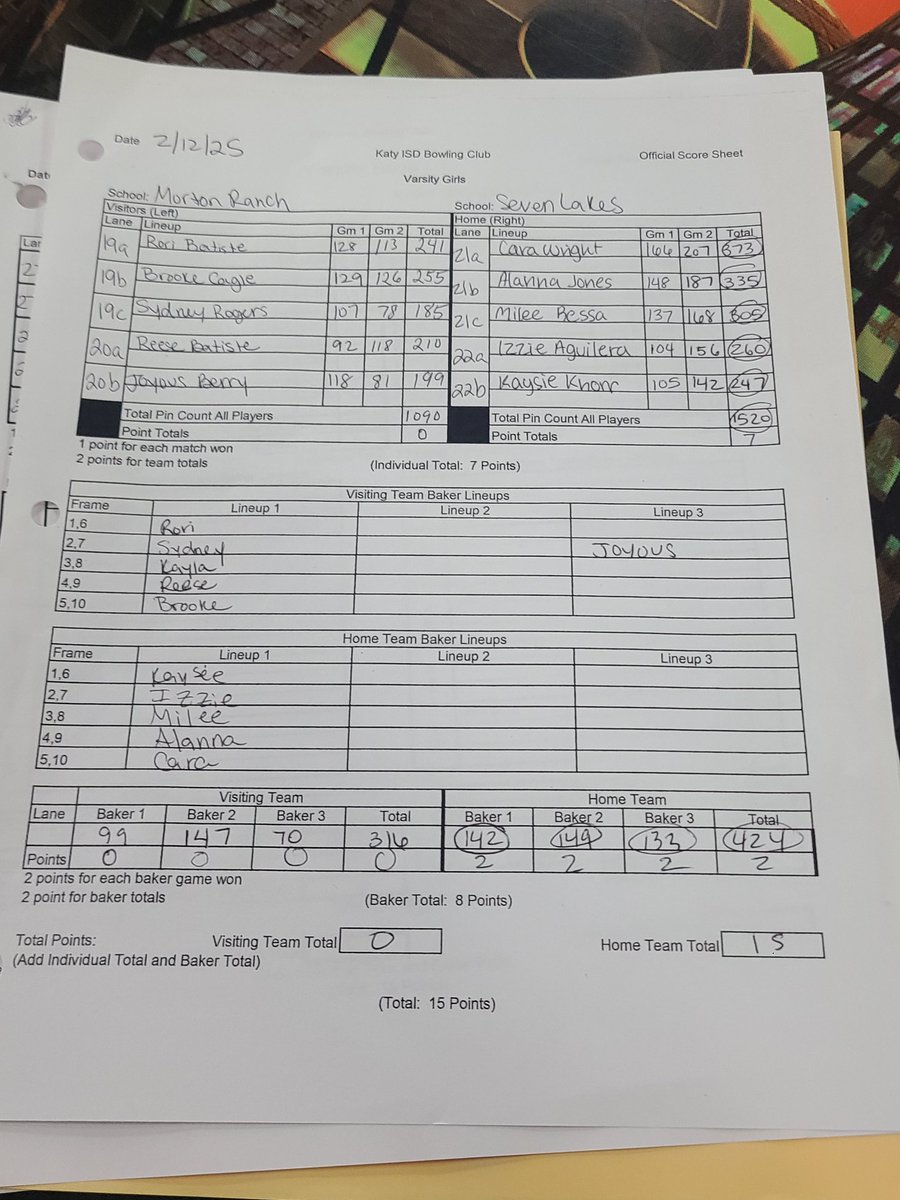 Date 2/12/25 Katy ISD Bowling Club Official Score Sheet
Varsity Girls
School: Morton Ranch School: Seven Lakes
Visitors (Left) Home (Right)
Lane Lineup Gm 1 Gm 2 Total Lane Lineup Gm 1 Gm 2 Total
19a Rori Batiste 128 113 241 21a Cara Wright 166 207 373
19b Brooke Cagle 129 126 255 21b Alanna Jones 148 187 335
19c Sydney Rogers 107 78 185 21c Milee Bessa 137 168 305
20a Reese Batiste 92 118 210 22a Izzie Aguilera 104 156 260
20b Joyous Berry 118 81 199 22b Kaysie 105 142 247
Total Pin Count All Players 1090 Total Pin Count All Players 1520
Point Totals 0 Point Totals 7
1 point for each match won
2 points for team totals (Individual Total: 7 Points)
Visiting Team Baker Lineups
Frame Lineup 1 Lineup 2 Lineup 3
1,6 Rori
2,7 Sydney Joyous
3,8 Kayla
4,9 Reese
5,10 Brooke
Home Team Baker Lineups
Frame Lineup 1 Lineup 2 Lineup 3
1,6 Kaysee
2,7 Izzie
3,8 Milee
4,9 Alanna
5,10 Cara
Visiting Team Home Team
Lane Baker 1 Baker 2 Baker 3 Total Baker 1 Baker 2 Baker 3 Total
99 147 70 316 142 149 133 424
Points 0 0 0 0 2 2 2 2
2 points for each baker game won
2 point for baker totals (Baker Total: 8 Points)
Total Points: Visiting Team Total 0 Home Team Total 15
(Add Individual Total and Baker Total)
(Total: 15 Points)